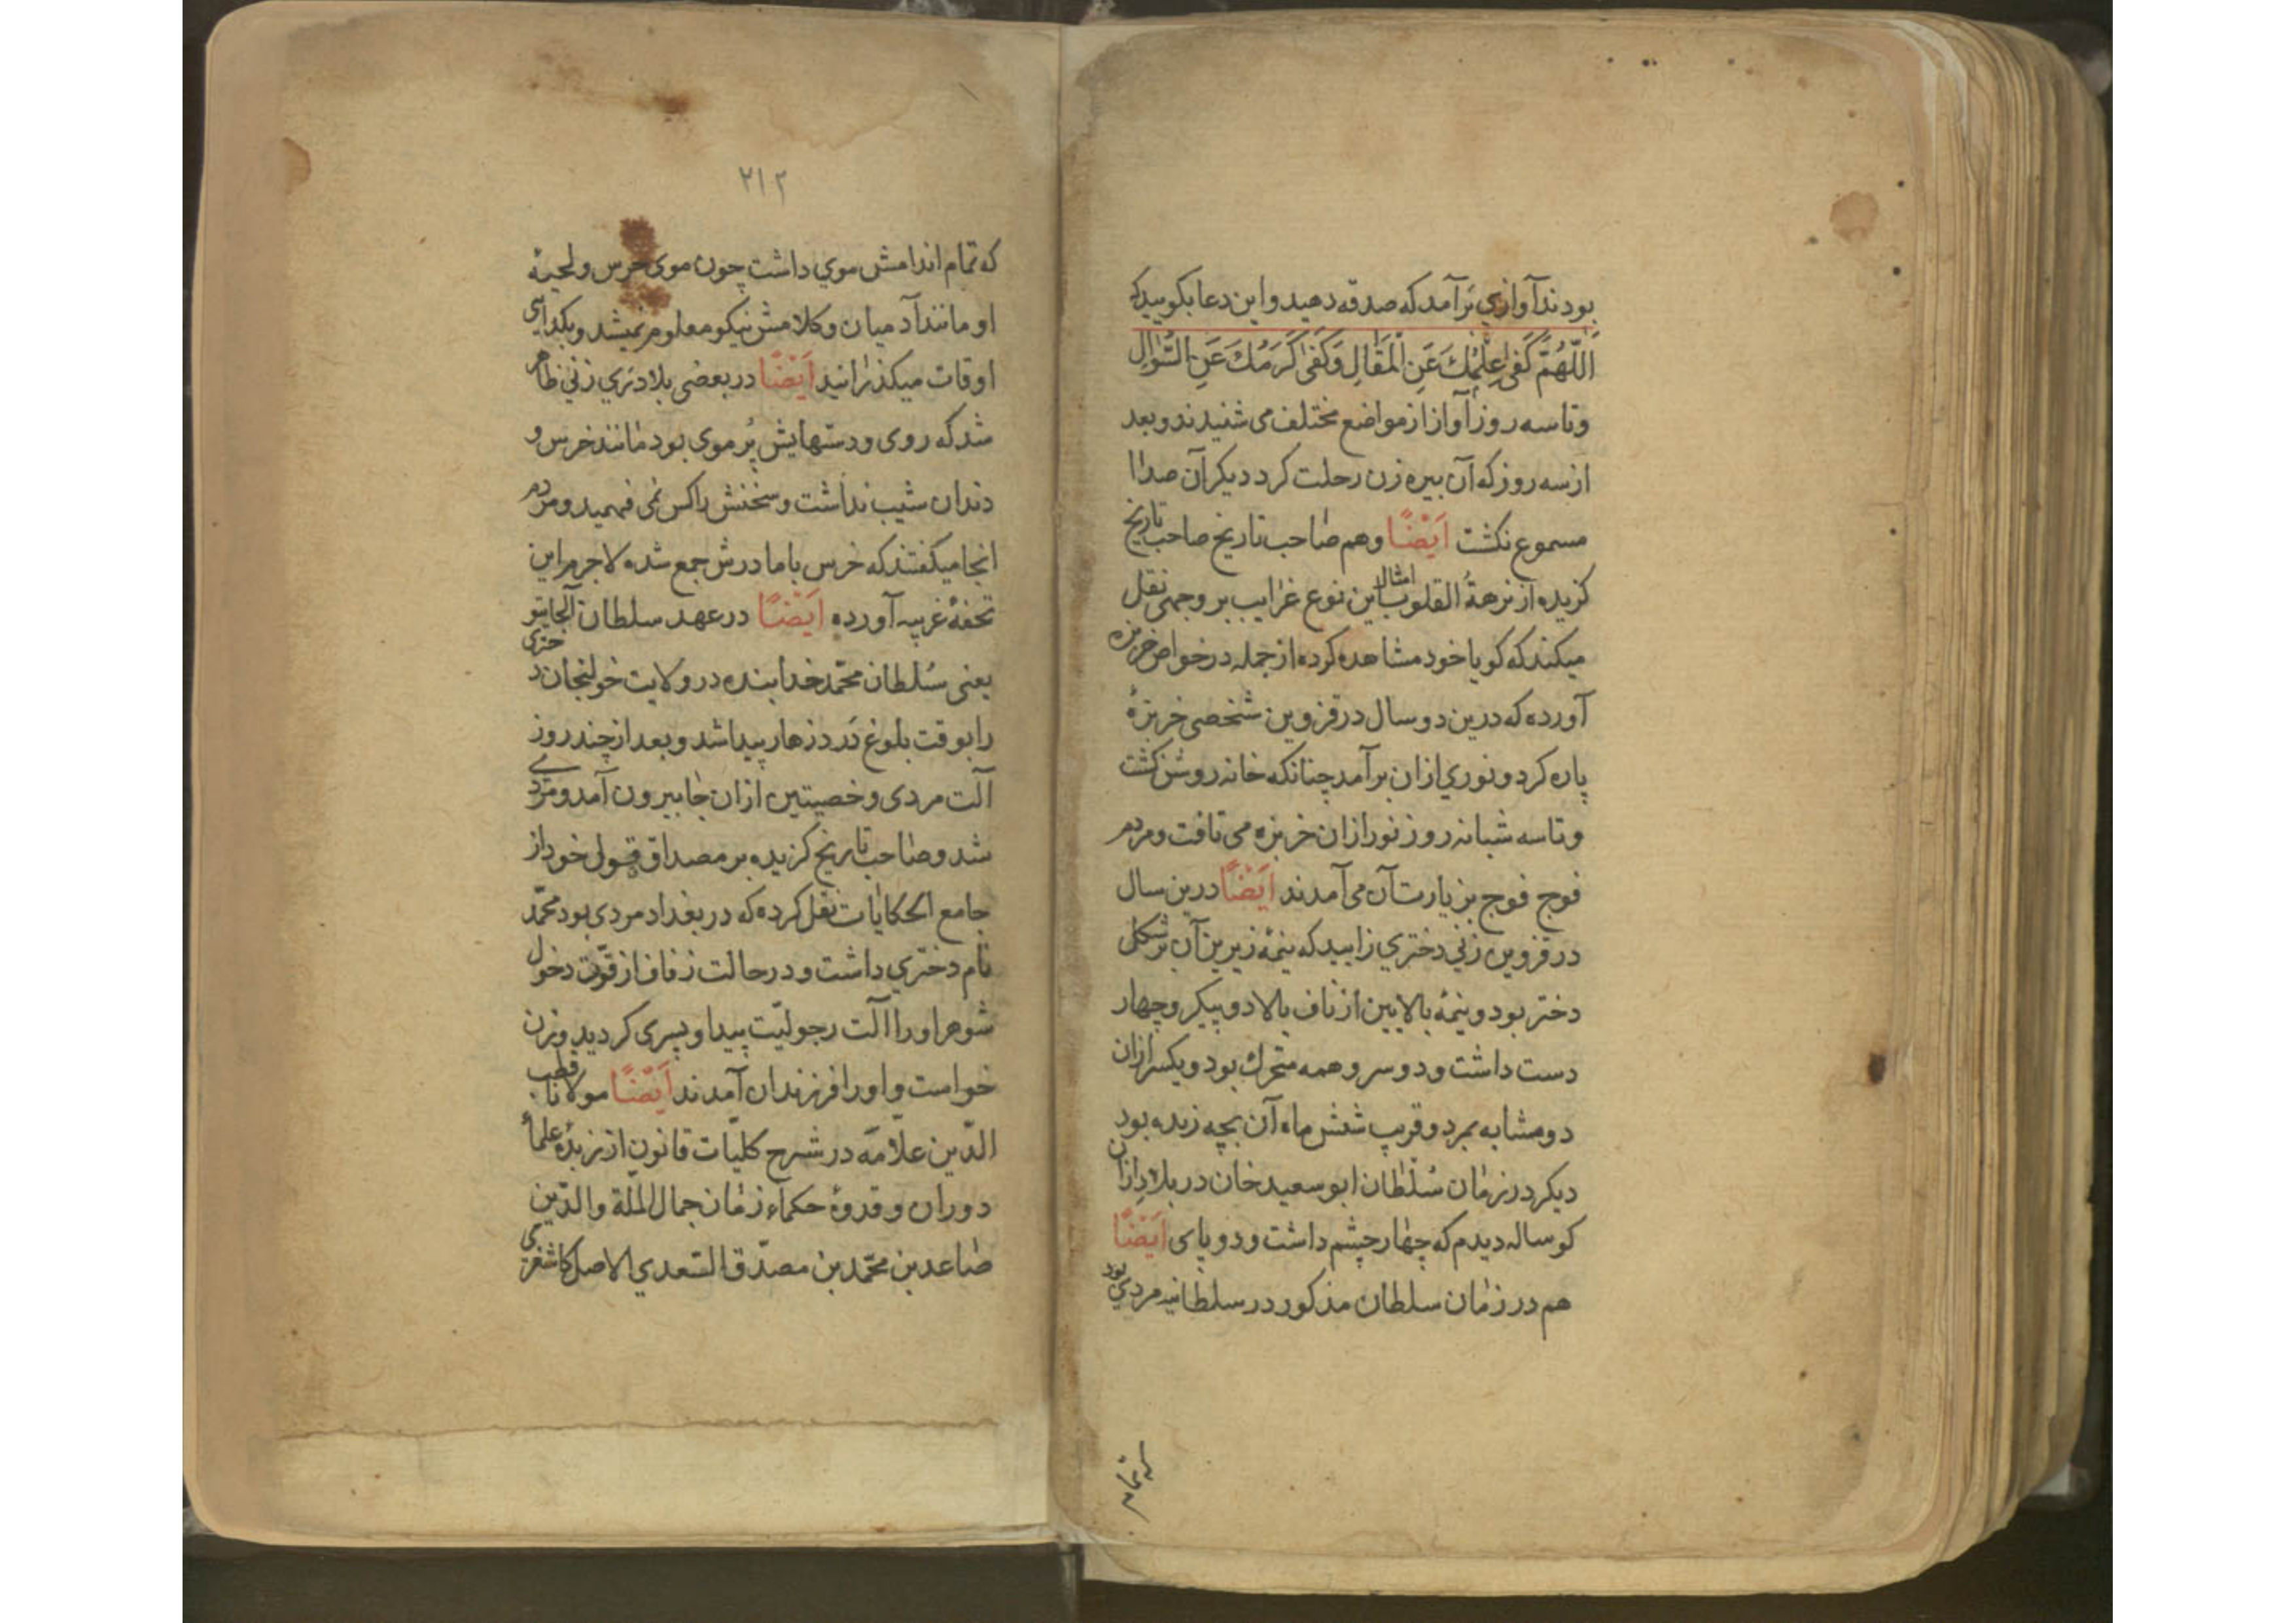 بودند آوازي برآمد که صدقه دهید و این دعا بکویید که
اَللّٰهُمَّ كَفىٰ عِلْمُكَ عَنِ الْمَقَالِ وَكَفىٰ كَرَمُكَ عَنِ السُّؤالِ
و تا سه روز آواز از مواضع مختلف می شنیدند و بعد
از سه روز که آن بیره زن رحلت کرد دیکر آن صدا
مسموع نکشت اَیْضًا و هم صاحب تاریخ صاحب تاریخ
کزیده از نزهةُ القلوب امثال این نوع غرایب بر وجهی نقل
میکند که کویا خود مشاهده کرده از جمله در خواص خربزه
آورده که درین دو سال در قزوین شخصی خربزهٔ
پاره کرد و نوري ازان برآمد چنانکه خانه روشن کشت
و تا سه شبانه روز نور ازان خربزه می تافت و مردم
فوج فوج بزیارت آن می آمدند اَیْضًا درین سال
در قزوین زني دختري زایید که نیمهٔ زیرین آن بر شکل
دختر بود و نیمهٔ بالایین از ناف بالا دو پیکر و چهار
دست داشت و دو سر و همه متحرك بود و یکسر ازان
دو مشابه بمرد و قریب شش ماه آن بچه زنده بود
دیکر در زمان سُلطان ابو سعید خان در بلاد ازان
کوساله دیدم که چهار چشم داشت و دو پای اَیْضًا
هم در زمان سلطان مذکور در سلطانیه مردي بود
۲۱۲
که تمام اندامش موي داشت چون موی خرس و لحیهٔ
او مانند آدمیان و کلامش نیکو معلوم نمیشد و بکدایي
اوقات میکذرانید اَیْضًا در بعضی بلاد نري زني ظاهر
شد که روی و دستهایش پُر موی بود مانند خرس و
دندان شیب نداشت و سخنش را کس نمی فهمید و مردم
انجا میکفتند که خرس با مادرش جمع شده لاجرم این
تحفهٔ غریبه آورده اَیْضًا در عهد سلطان آلجایتو
یعنی سُلطان محمّد خدابنده در ولایت خولنجان دختری
را بوقت بلوغ دَرد زهار پیدا شد و بعد از چند روز
آلت مردی و خصیتین ازان جا بیرون آمد و مردی
شد و صاحب تاریخ کزیده بر مصداق قول خود از
جامع الحکایات نقل کرده که در بغداد مردی بود محمّد
نام دختري داشت و در حالت زفاف از قوّت دخول
شوهر او را آلت رجولیّت پیدا و پسری کردید و زن
خواست و او را فرزندان آمدند اَیْضًا مولانا قطب
الدّین علاّمه در شرح کلیّات قانون از زبدهٔ علمأ
دوران و قدوهٔ حکماء زمان جمال الملّة والدّین
صاعد بن محمّد بن مصدّق السّعدي الاصل کاشغری